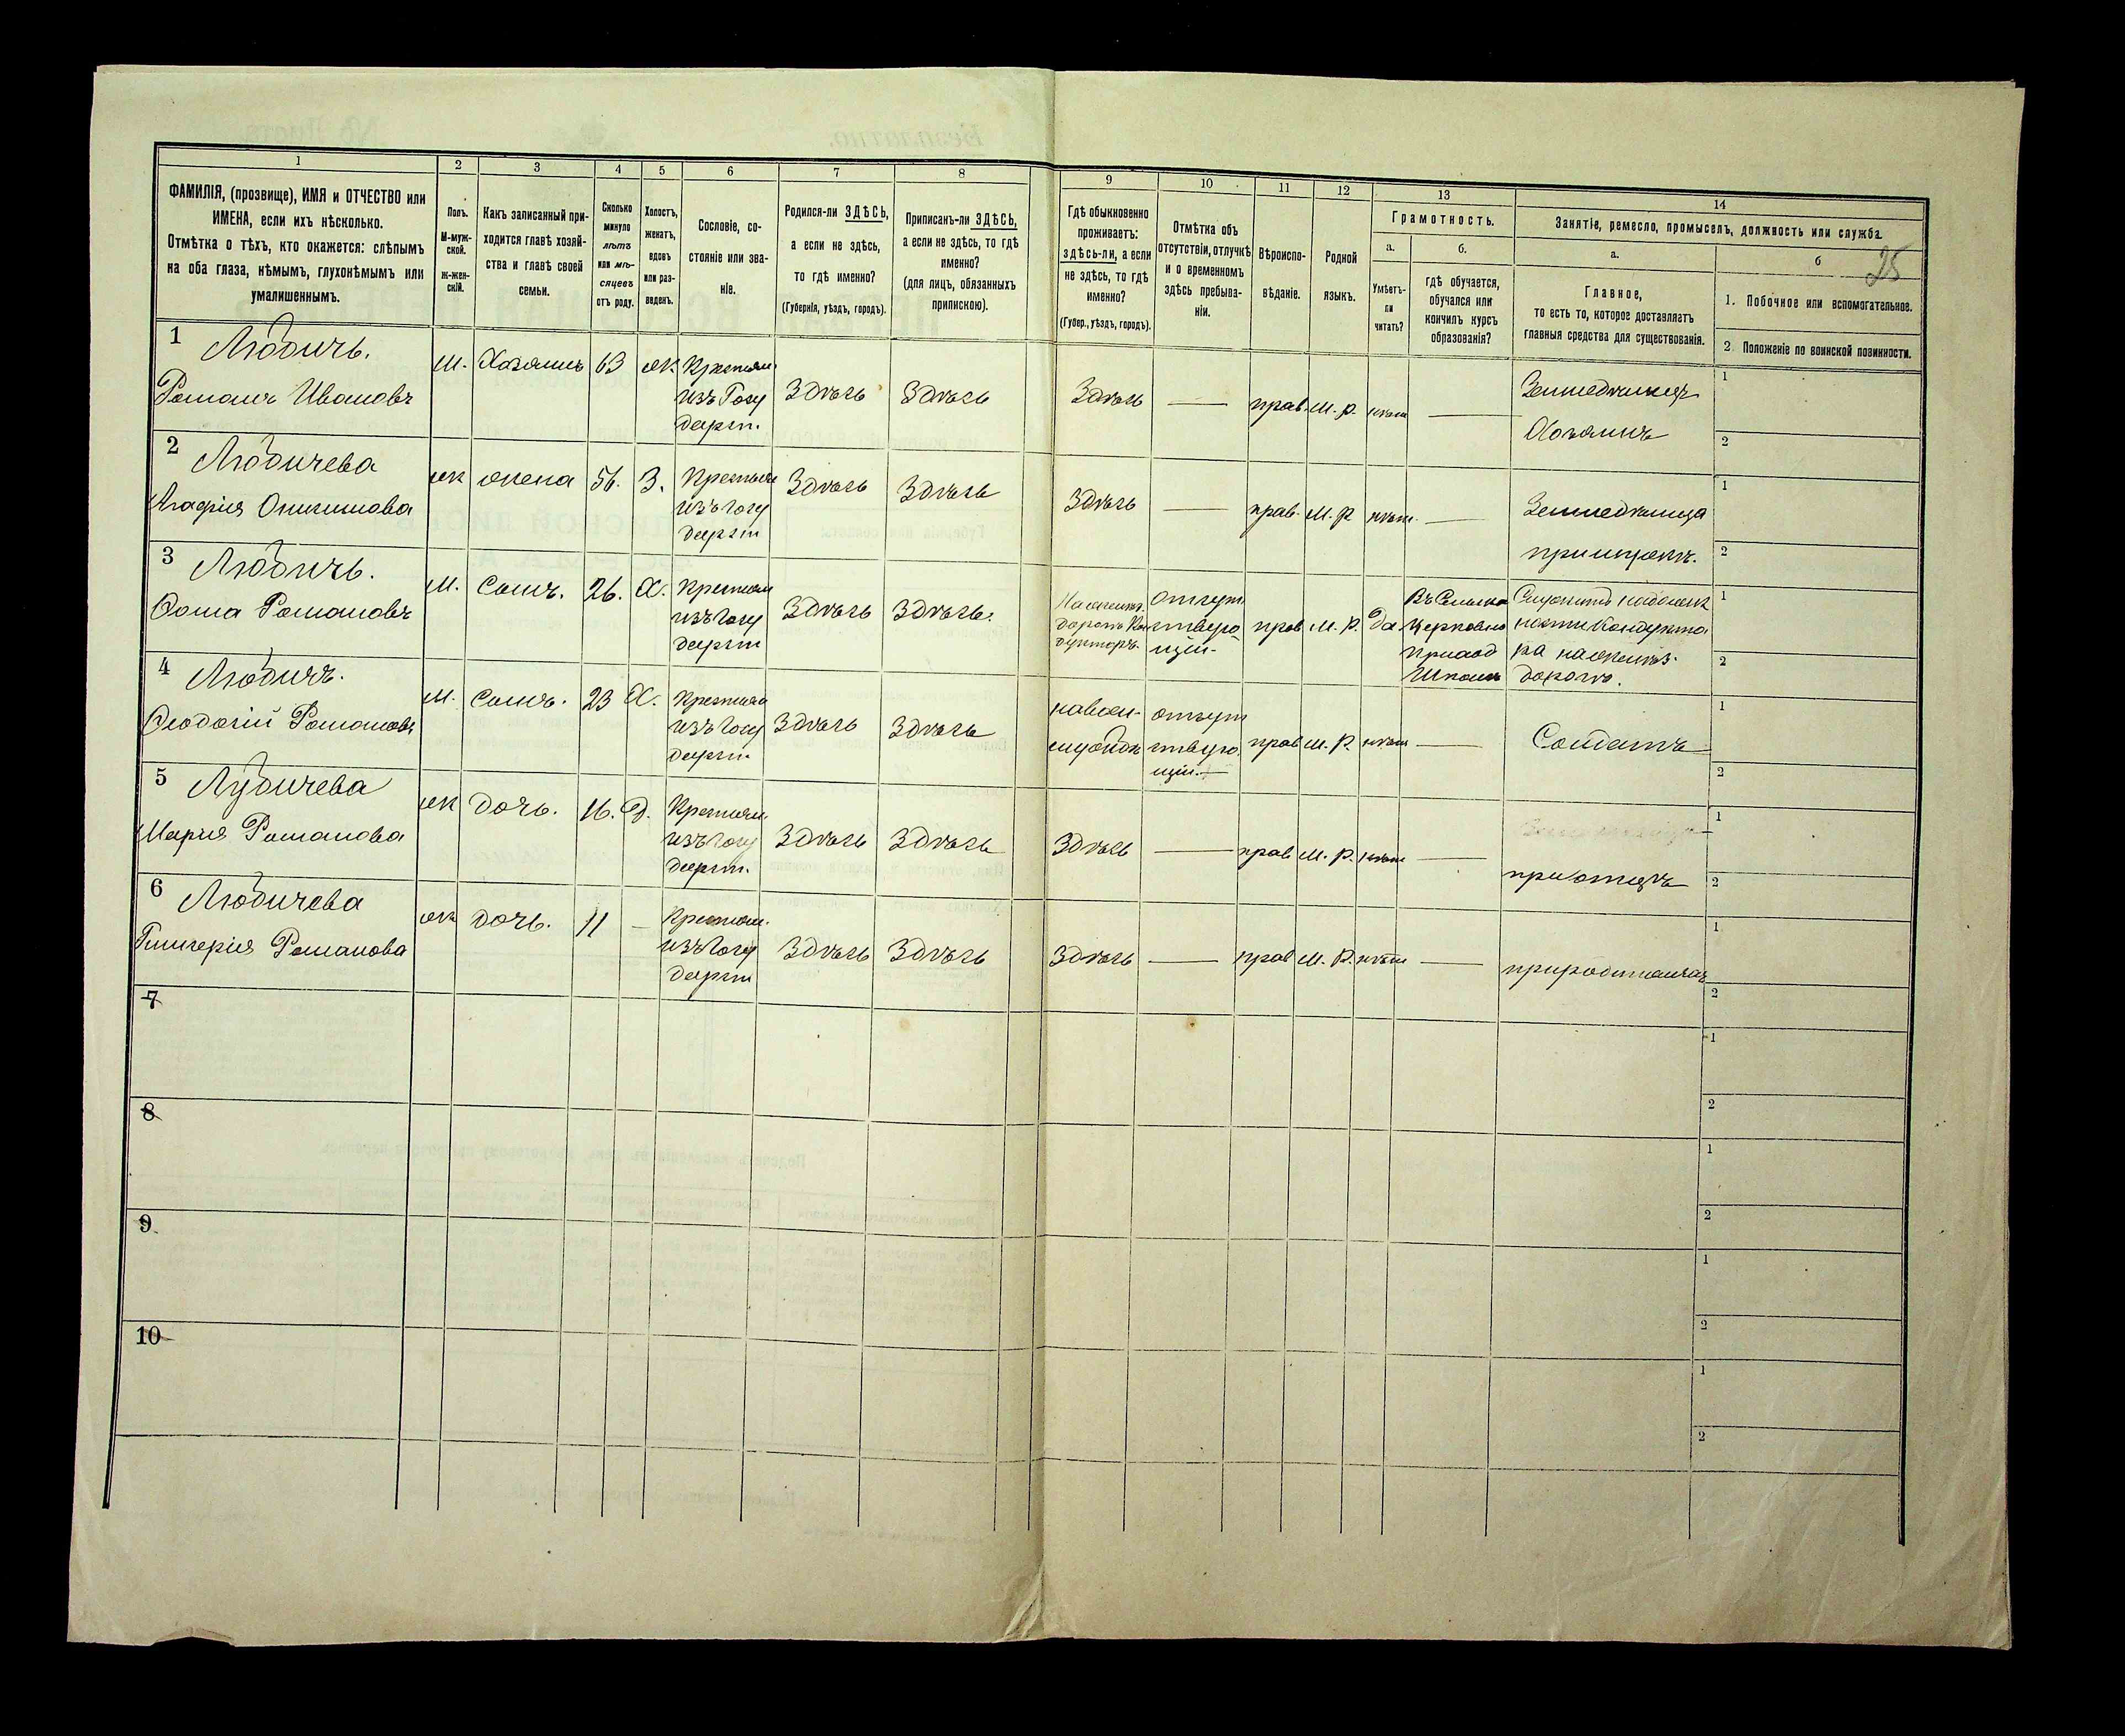 25
1
2
3
4
5
6
7
8
9
10
11
12
13
14
ФАМИЛІЯ, (прозвище), ИМЯ и ОТЧЕСТВО или
ИМЕНА, если ихъ нѣсколько.
Отмѣтка о тѣхъ, кто окажется: слѣпымъ
на оба глаза, нѣмымъ, глухонѣмымъ или
умалишеннымъ.
Полъ.
М-муж-
ской.
Ж-жен-
скій.
Какъ записанный при-
ходится главѣ хозяй-
ства и главѣ своей
семьи.
Сколько
минуло
лѣтъ
или мѣ-
сяцевъ
отъ роду.
Холостъ,
женатъ,
вдовъ
или раз-
веденъ.
Сословіе, со-
стояніе или зва-
ніе.
Родился-ли ЗДѢСЬ,
а если не здѣсь,
то гдѣ именно?
(Губернія, уѣздъ, городъ).
Приписанъ-ли ЗДѢСЬ,
а если не здѣсь, то гдѣ
именно?
(для лицъ, обязанныхъ
припискою).
Гдѣ обыкновенно
проживаетъ:
здѣсь-ли, а если
не здѣсь, то гдѣ
именно?
(Губер., уѣздъ, городъ).
Отмѣтка объ
отсутствіи, отлучкѣ
и о временномъ
здѣсь пребыва-
ніи.
Вѣроиспо-
вѣданіе.
Родной
языкъ.
Грамотность.
а.
Умѣетъ-
ли
читать?
б.
Гдѣ обучается,
обучался или
кончилъ курсъ
образованія?
Занятіе, ремесло, промыселъ, должность или служба.
а.
Главное,
то есть то, которое доставляетъ
главныя средства для существованія.
б
1. Побочное или вспомогательное.
2. Положеніе по воинской повинности.
1
Любичъ.
Романъ Ивановъ
М.
Хозяинъ
63
жк
Крестьян.
изъ Госу
дарст.
Здѣсь
Здѣсь
Здѣсь
—
прав.
М. р.
нѣт
—
Земледѣлецъ
Хозяинъ
1
2
2
Любичева
Агафия Онисимова
жк
жена
56.
З.
Крестьян
изъ Госу
дарст
Здѣсь
Здѣсь
Здѣсь
—
прав.
М. р
нѣт.
—
Земледѣлица
примужѣ.
1
2
3
Любичъ.
Фома Романовъ
М.
Сынъ.
26.
Х.
Крестьян
изъ Госу
дарст
Здѣсь
Здѣсь.
отсут
ствую
щій.
прав
М. р.
Да.
Церковно
Приход
Школѣ
1
2
4
Любичъ.
Феодосій Романовъ
М.
Сынъ.
23
Х.
Крестьян
изъ Госу
дарст.
Здѣсь
Здѣсь
отсут
ствую
щій.—
прав
М. р.
нѣт
—
Солдатъ
1
2
5
Лубичева
Мария Романова
жк
Дочь.
16.
Д.
Крестьян.
изъ Госу
дарст.
Здѣсь
Здѣсь
Здѣсь
—
прав
М. р.
нѣт
—
приотцѣ
1
2
6
Любичева
Гликерія Романова
жк
Дочь.
11
—
Крестьян.
изъ Госу
дарст
Здѣсь
Здѣсь
Здѣсь
—
прав
М. р.
нѣт
—
при родителяхъ
1
2
7
1
2
8
1
2
9
1
2
10
1
2